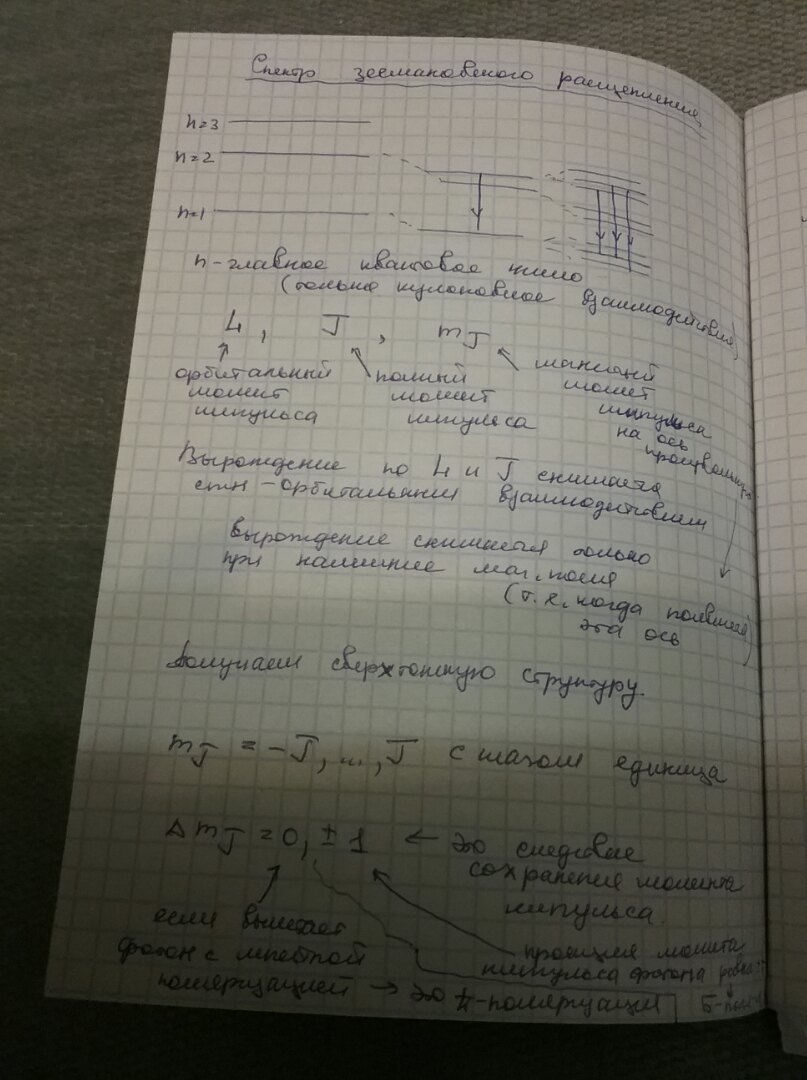 Спектр зеемановского расщепления
n=3
n=2
n=1
n-главное квантовое число
(только кулоновское взаимодействие)
L, J, mJ
орбитальный
момент
импульса
полный
момент
импульса
момент
импульса
на ось
Вырождение по L и J снимается
спин-орбитальным взаимодействием
Вырождение снимается только
при наличие маг. поля
(т.е. когда появился
эта ось
Получаем сверхтонкую структуру.
mJ = -J, ..., J с шагом единица
ΔmJ = 0, ± 1 ← это следствие
сохранения момента
импульса.
если вылетает
фотон с линейной
поляризацией → это π-поляризация
проекция момента
импульса фотона равна ±1